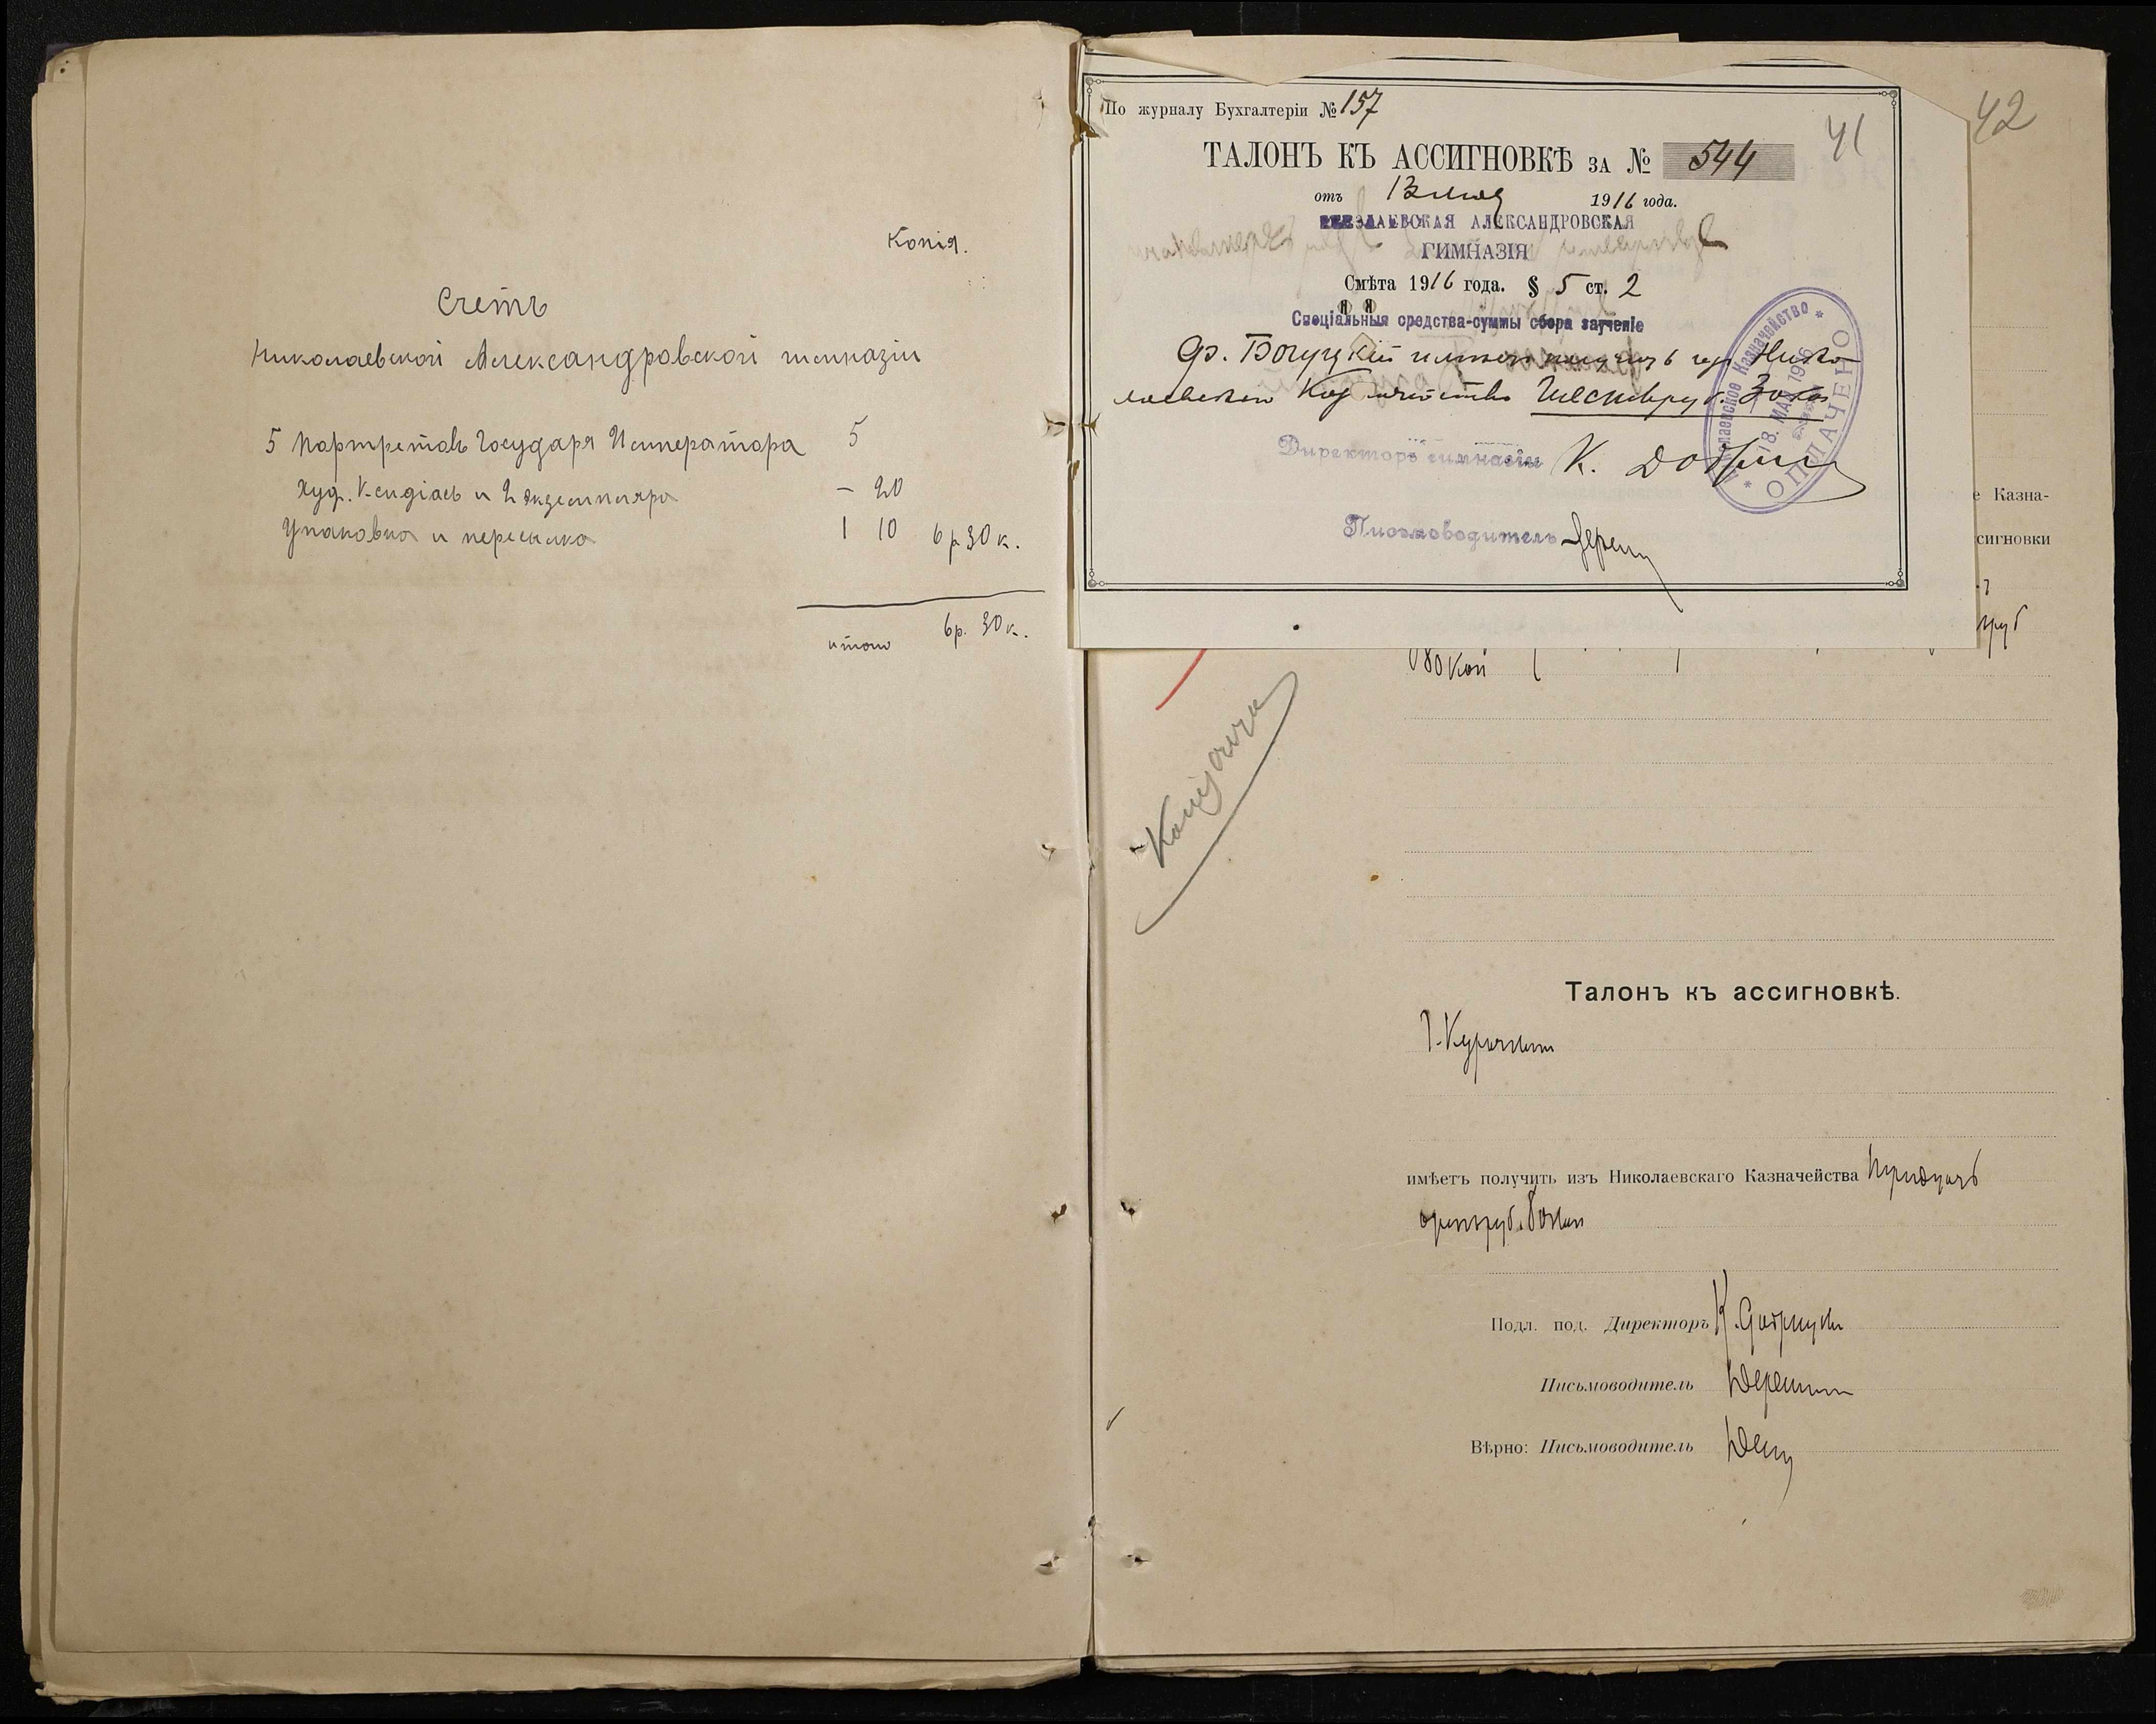 Копія.
Счетъ
Николаевской Александровской гимназіи
5 портретовъ Государя Императора 5
худ. и 2 экземпляра — 20
Упаковка и пересылка 1 10 6 р 30 к.
итого 6 р. 30 к.
42
41
По журналу Бухгалтеріи № 157
ТАЛОНЪ КЪ АССИГНОВКѢ ЗА № 544
отъ 13 мая 1916 года.
НИКОЛАЕВСКАЯ АЛЕКСАНДРОВСКАЯ
ГИМНАЗІЯ
Смѣта 1916 года. § 5 ст. 2
Спеціальныя средства-суммы сбора за ученіе
Фр. Богуцкій имѣетъ получить изъ Нико
лаевскаго Казначейства Шесть руб. 30 коп
Директоръ гимназіи К.
Письмоводитель
Николаевское Казначейство
18. МАЯ 1916
ОПЛАЧЕНО
е Казна-
сигновки
руб
80 коп
Талонъ къ ассигновкѣ.
имѣетъ получить изъ Николаевскаго Казначейства
руб. 80 коп
Подл. под. Директоръ К.
Письмоводитель
Вѣрно: Письмоводитель